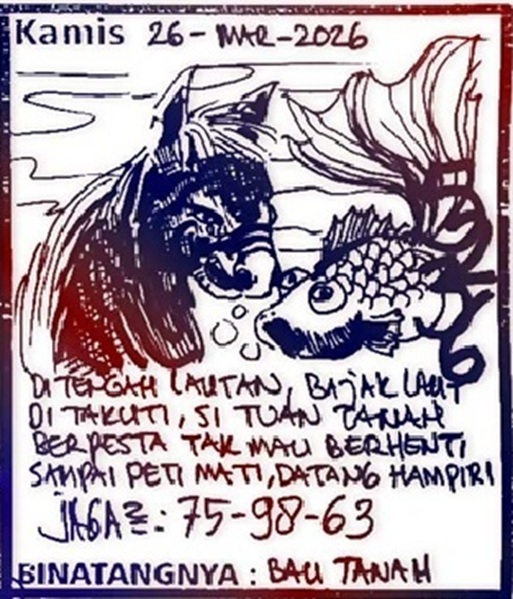 Kamis 26-MAR-2026
DI TENGAH LAUTAN, BAJAK LAUT
DI TAKUTI, SI TUAN TANAH
BERPESTA TAK MAU BERHENTI
SAMPAI PETI MATI, DATANG HAMPIRI
JAGA2=: 75-98-63
BINATANGNYA : BAU TANAH